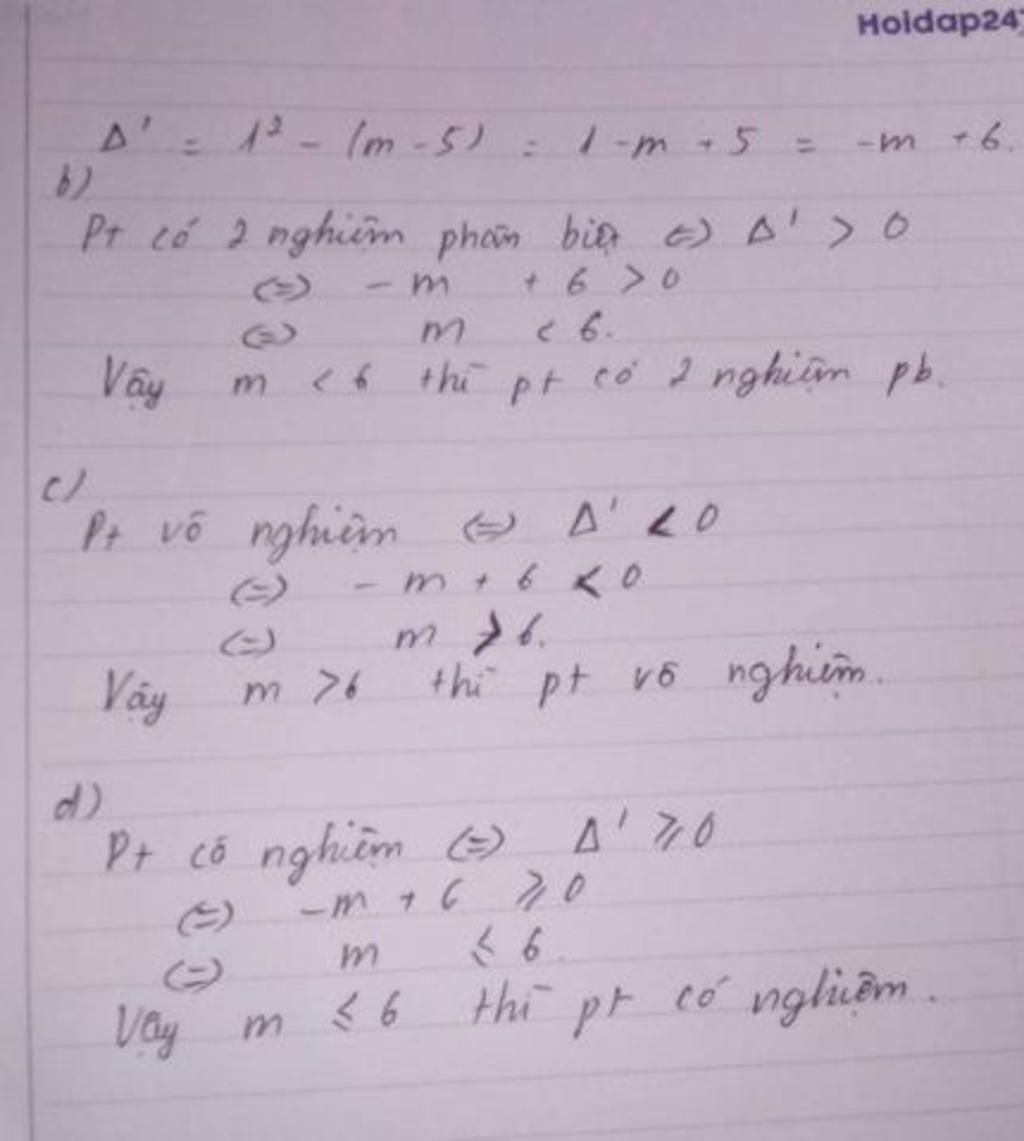 Hoidap247
Δ' = 1² - (m - 5) = 1 - m + 5 = -m + 6.
b)
Pt có 2 nghiệm phân biệt (=) Δ' > 0
(=) - m + 6 > 0
(=) m < 6.
Vậy m < 6 thì pt có 2 nghiệm pb.
c)
Pt vô nghiệm (=) Δ' < 0
(=) - m + 6 < 0
(=) m > 6.
Vậy m > 6 thì pt vô nghiệm.
d)
Pt có nghiệm (=) Δ' ⩾ 0
(=) -m + 6 ⩾ 0
(=) m ⩽ 6.
Vậy m ⩽ 6 thì pt có nghiệm.